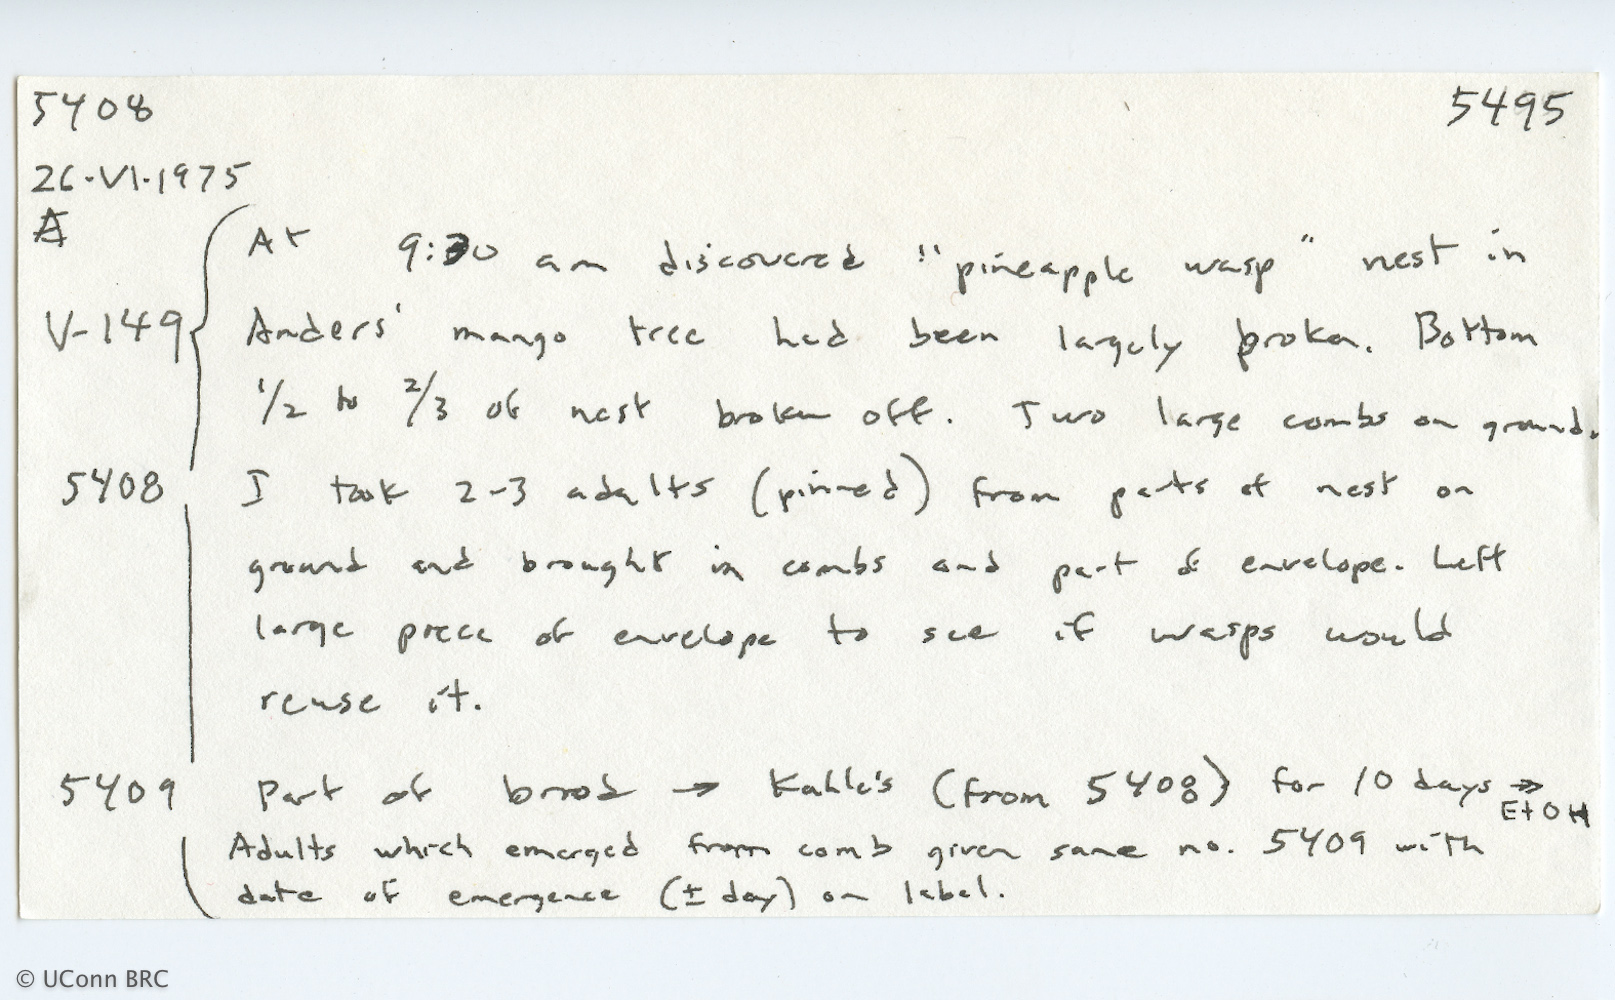 5408 5495
26·VI·1975
A
At 9:30 am discovered "pineapple wasp" nest in
V-149 Anders' mango tree had been largely broken. Bottom
1/2 to 2/3 of nest broken off. Two large combs on ground.
5408 I took 2-3 adults (pinned) from parts of nest on
ground and brought in combs and part of envelope. Left
large piece of envelope to see if wasps would
reuse it.
5409 Part of brood → Kahle's (from 5408) for 10 days →
EtOH
Adults which emerged from comb given same no. 5409 with
date of emergence (± day) on label.
© UConn BRC